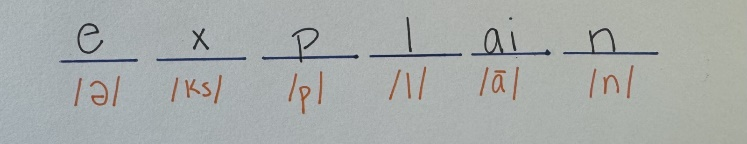 e x p l ai n
/ə/ /ks/ /p/ /l/ /ā/ /n/